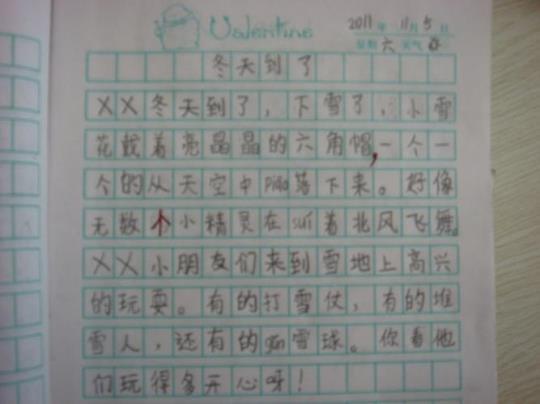 Valentine 2011年 11月 5日
星期 六 天气
冬天到了
XX冬天到了，下雪了，小雪
花戴着亮晶晶的六角帽，一个一
个的从天空中piāo落下来。好像
无数个小精灵在suí着北风飞舞。
XX小朋友们来到雪地上高兴
的玩耍。有的打雪仗，有的堆
雪人，还有的gǔn雪球。你看他
们玩得多开心呀！